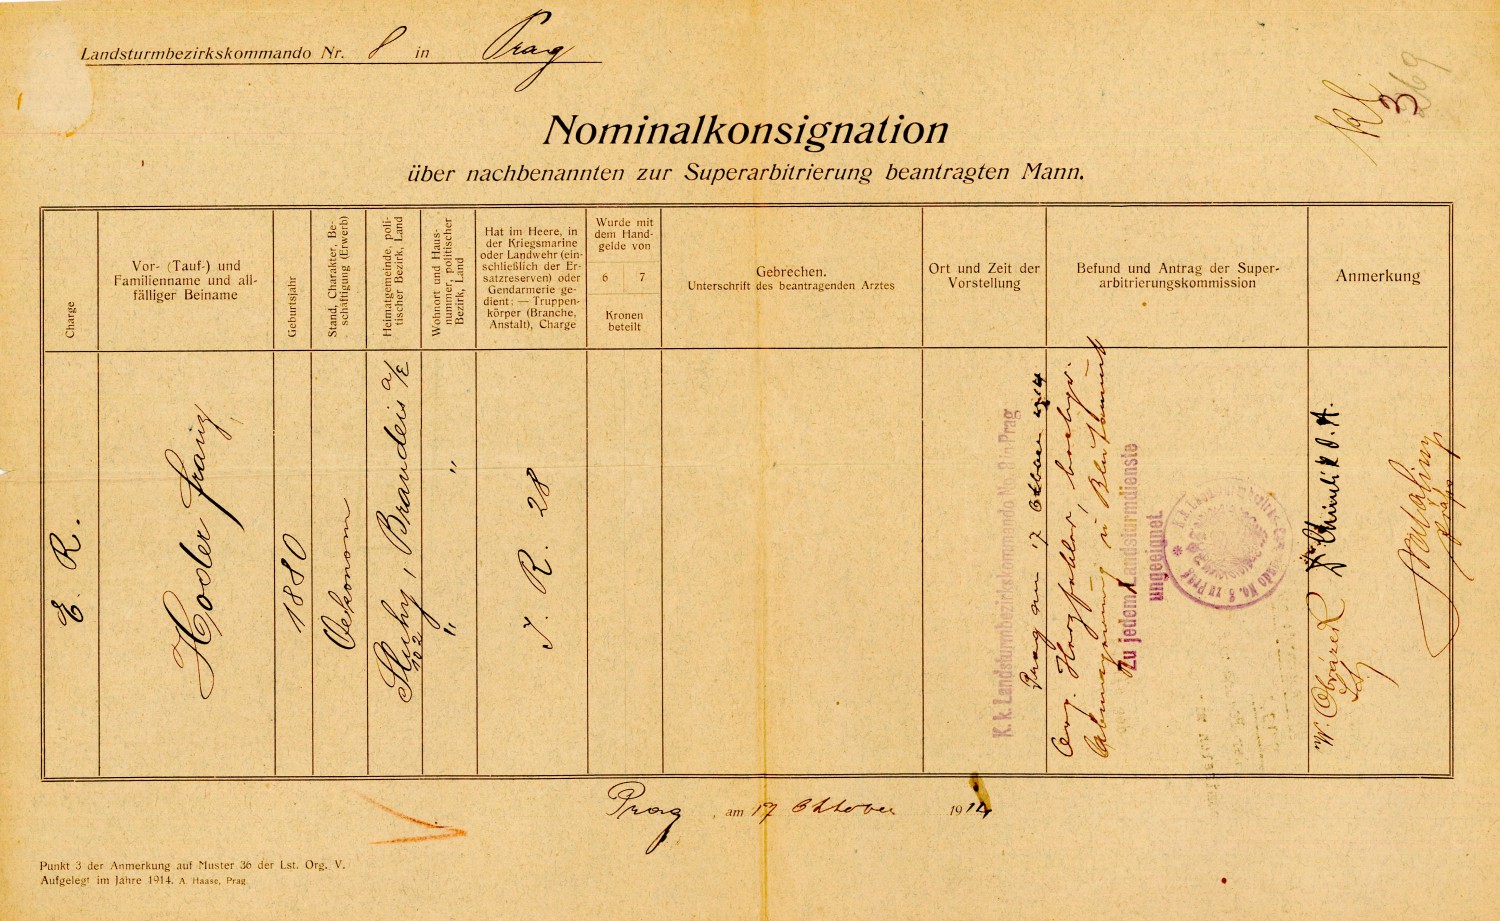 Landsturmbezirkskommando Nr. 8 in Prag
3
369
Nominalkonsignation
über nachbenannten zur Superarbitrierung beantragten Mann.
Charge
Vor- (Tauf-) und
Familienname und all-
fälliger Beiname
Geburtsjahr
Stand, Charakter, Be-
schäftigung (Erwerb)
Heimatgemeinde, poli-
tischer Bezirk, Land
Wohnort und Haus-
nummer, politischer
Bezirk, Land
Hat im Heere, in
der Kriegsmarine
oder Landwehr (ein-
schließlich der Er-
satzreserven) oder
Gendarmerie ge-
dient: — Truppen-
körper (Branche,
Anstalt), Charge
Wurde mit
dem Hand-
gelde von
6 7
Kronen
beteilt
Gebrechen.
Unterschrift des beantragenden Arztes
Ort und Zeit der
Vorstellung
Befund und Antrag der Super-
arbitrierungskommission
Anmerkung
E. R.
Hoder Franz
1880
Oekonom
Sluhy, Brandeis a/E
102
" "
J. R. 28
K. k. Landsturmbezirkskommando No. 8 in Prag
Prag am 17 Oktober 1914
Org. Herzfehler, hochgr.
Abmagerung u Blutarmut
Zu jedem Landsturmdienste
ungeeignet
W. Obrázek
Prag, am 17 Oktober 1914
Punkt 3 der Anmerkung auf Muster 36 der Lst. Org. V.
Aufgelegt im Jahre 1914. A. Haase, Prag.